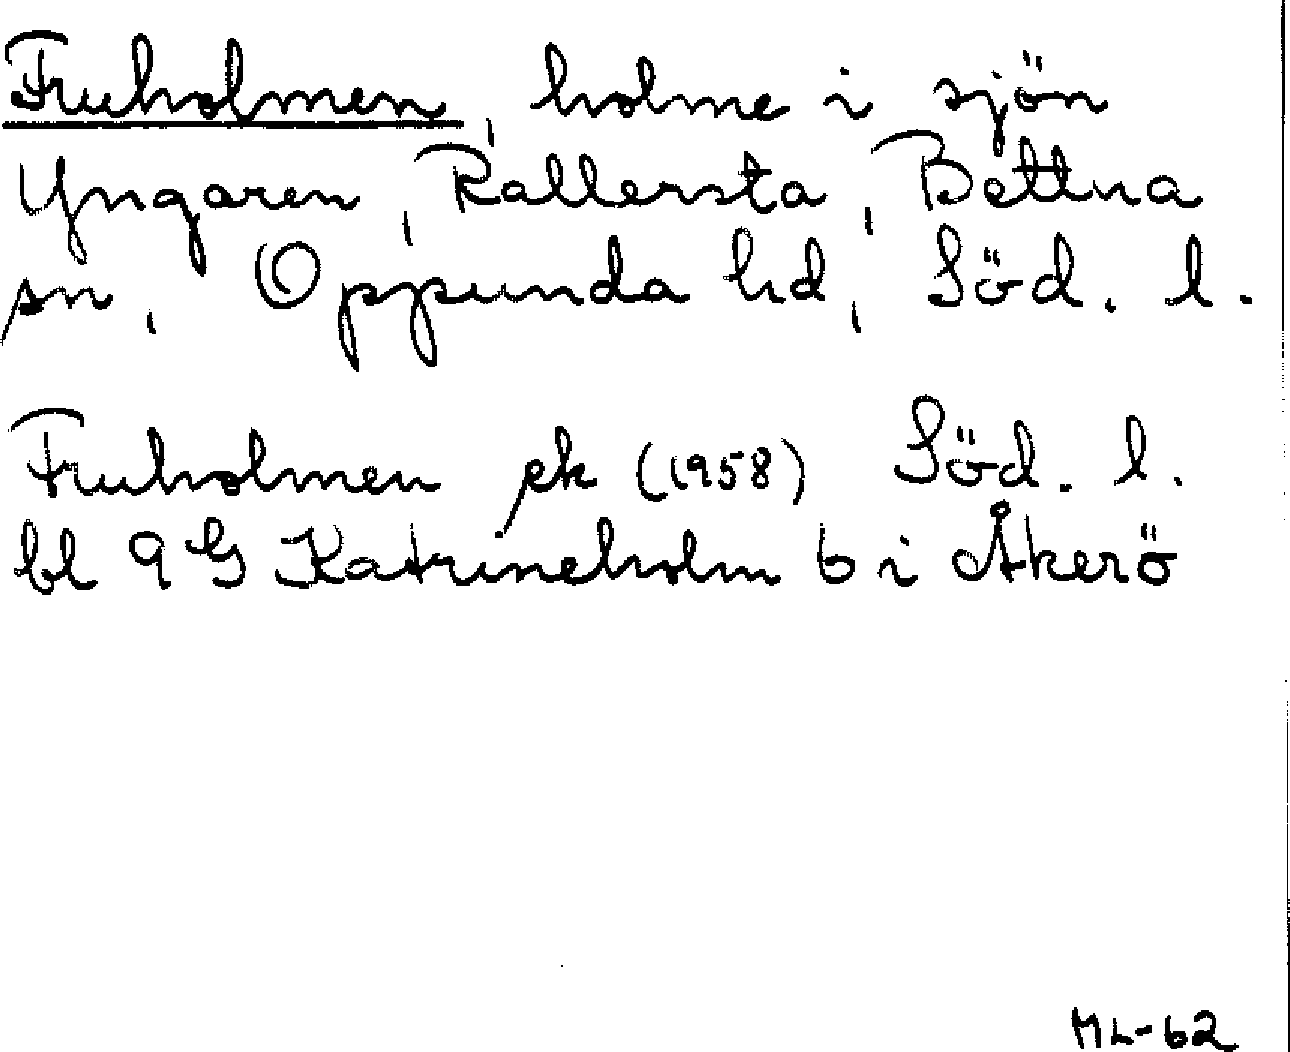 Fruholmen, holme i sjön
Yngaren, Rallersta, Bettna
sn, Oppunda hd, Söd. l.
Fruholmen ek (1958) Söd. l.
bl 9G Katrineholm 6 i Åkerö
ML-62